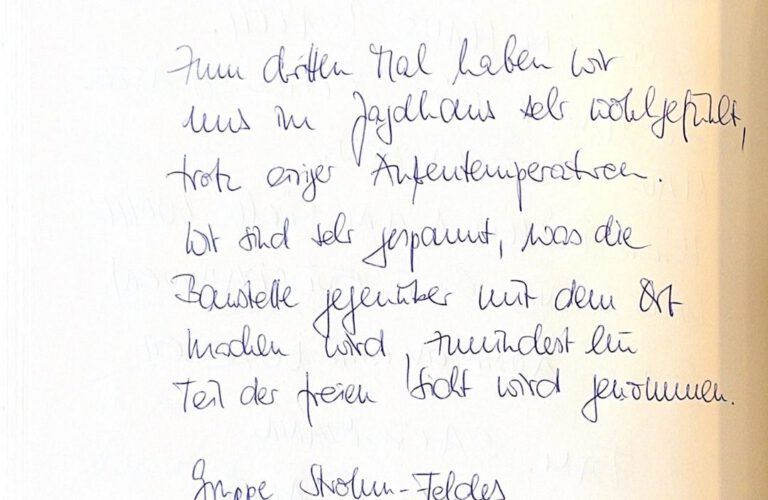 Zum dritten Mal haben wir
uns im Jagdhaus sehr wohlgefühlt,
trotz eisiger Außentemperaturen.
Wir sind sehr gespannt, was die
Baustelle gegenüber mit dem Ort
machen wird, zumindest ein
Teil der freien Sicht wird genommen.
Gruppe